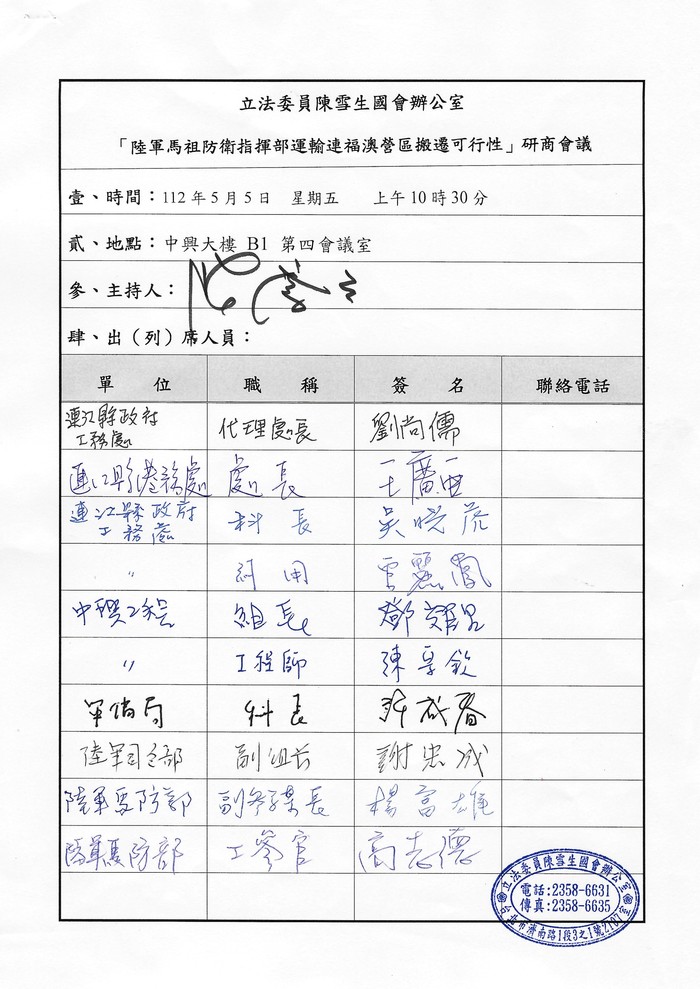 立法委員陳雪生國會辦公室
「陸軍馬祖防衛指揮部運輸連福澳營區搬遷可行性」研商會議
壹、時間：112年5月5日 星期五 上午10時30分
貳、地點：中興大樓 B1 第四會議室
參、主持人：
肆、出（列）席人員：
單 位 職 稱 簽 名 聯絡電話
連江縣政府
工務處 代理處長 劉尚儒
連江縣港務處 處長
連江縣政府
工務處 科長 吳曉
〃
中興工程 組長 鄭
〃 工程師 陳享欽
軍備局 科長
陸軍司令部 副組長 謝忠成
陸軍馬防部 副參謀長 楊富雄
陸軍馬防部 工參官 高志德
立法委員陳雪生國會辦公室
電話:2358-6631
傳真:2358-6635
台北市濟南路1段3之1號2107室